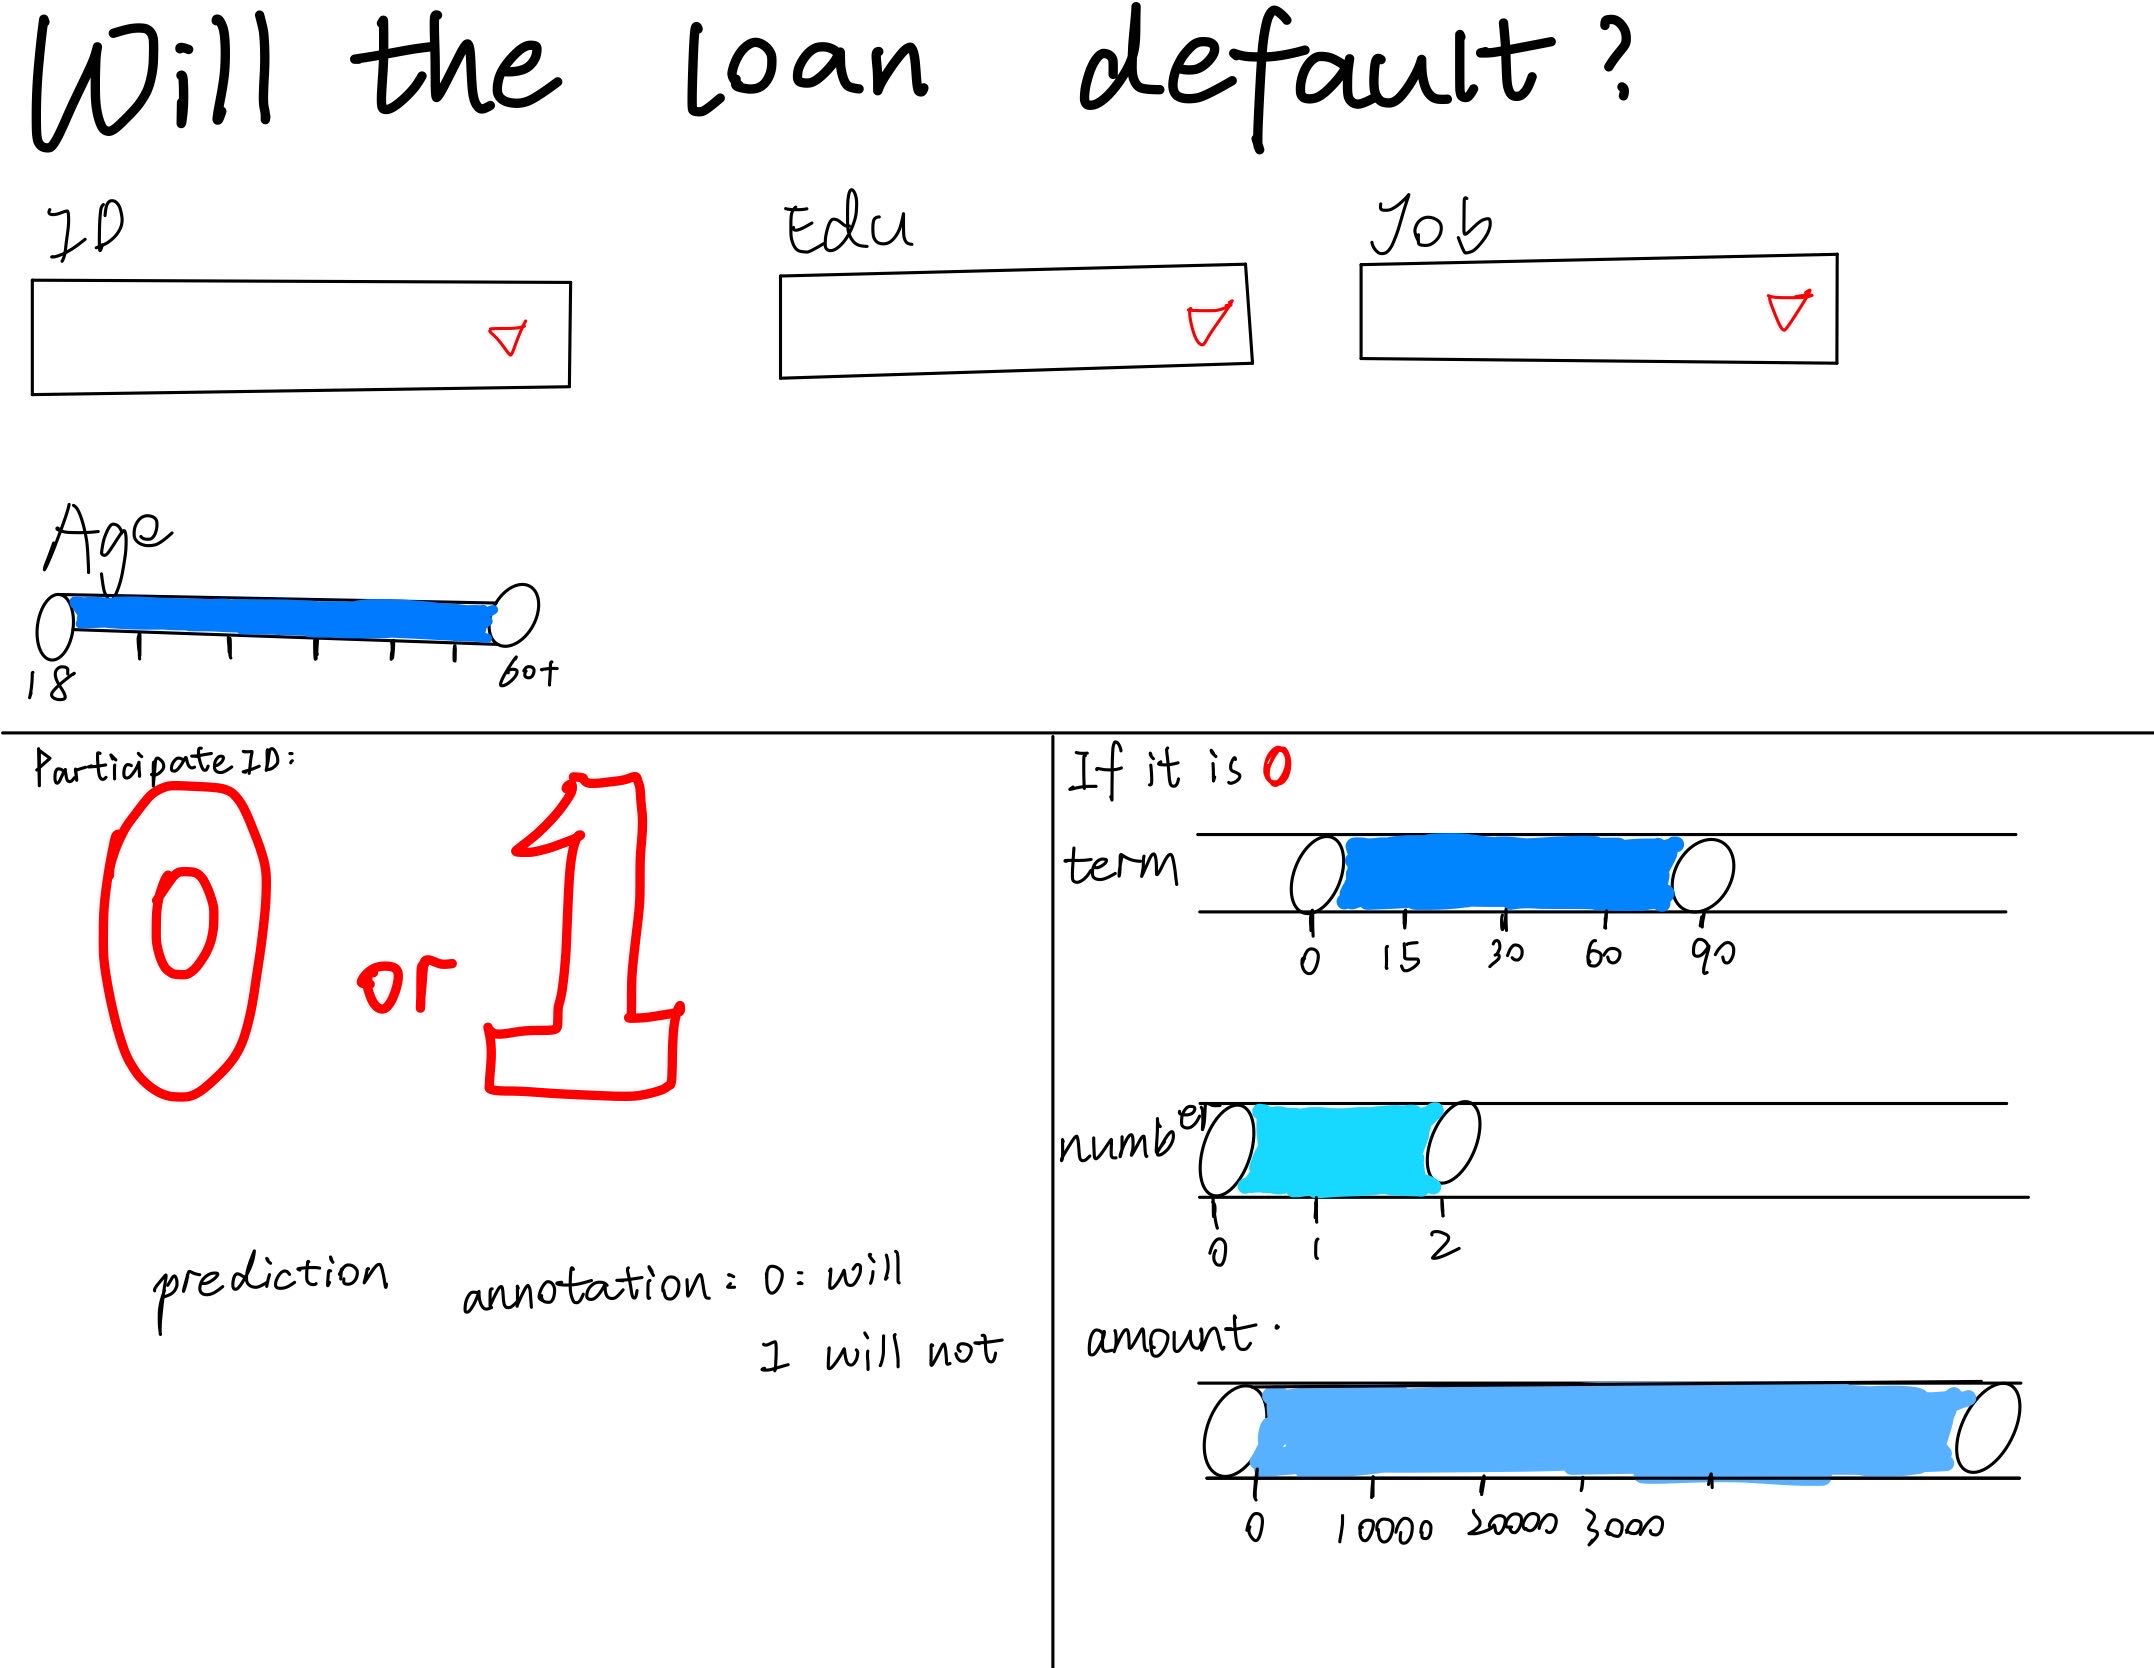 Will the loan default?
ID
Edu
Job
Age
18
60+
Participate ID:
0 or 1
prediction
annotation: 0: will
1 will not
If it is 0
term
0 15 30 60 90
number
0 1 2
amount:
0 10000 20000 3000